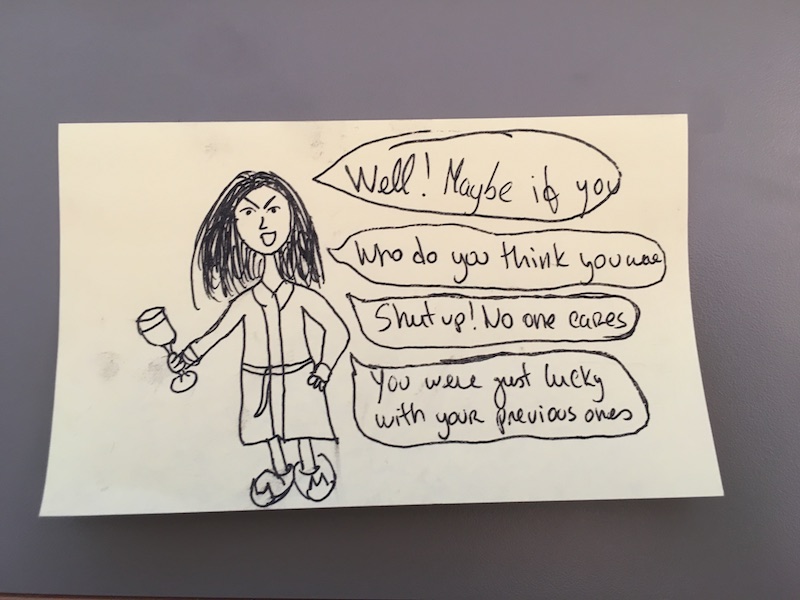 Well! Maybe if you
Who do you think you are
Shut up! No one cares
You were just lucky
with your previous ones